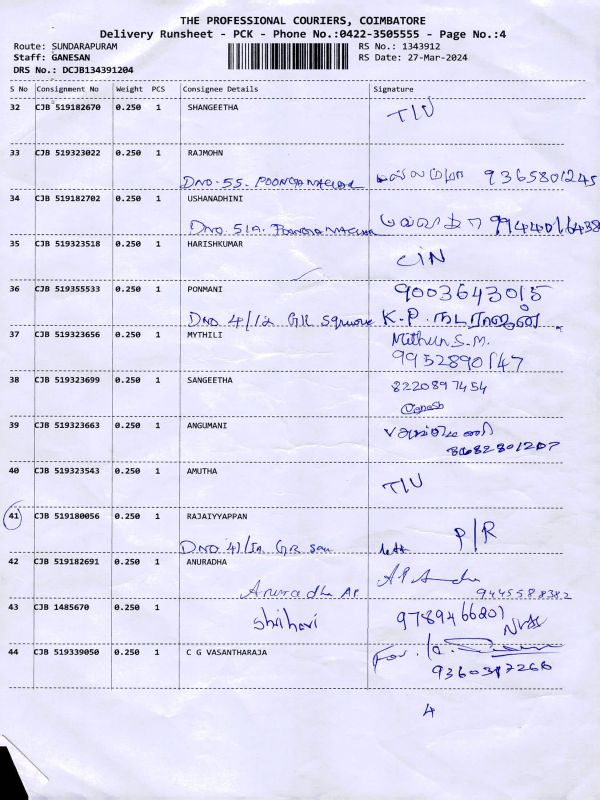 THE PROFESSIONAL COURIERS, COIMBATORE
Delivery Runsheet - PCK - Phone No.:0422-3505555 - Page No.:4
Route: SUNDARAPURAM RS No.: 1343912
Staff: GANESAN RS Date: 27-Mar-2024
DRS No.: DCJB134391204
S No Consignment No Weight PCS Consignee Details Signature
32 CJB 519182670 0.250 1 SHANGEETHA
33 CJB 519323022 0.250 1 RAJMOHN
DNO. 55. POONGA NAGAR 9365801245
34 CJB 519182702 0.250 1 USHANADHINI
DNO. 51A. POONGA NAGAR 9944016438
35 CJB 519323518 0.250 1 HARISHKUMAR
36 CJB 519355533 0.250 1 PONMANI 9003643015
DNO 4/12 GR Square K.P. நடராஜன்
37 CJB 519323656 0.250 1 MYTHILI Mithun S.M.
9952890147
38 CJB 519323699 0.250 1 SANGEETHA 8220897454
Ganesh
39 CJB 519323663 0.250 1 ANGUMANI
40 CJB 519323543 0.250 1 AMUTHA
41 CJB 519180056 0.250 1 RAJAIYYAPPAN P/R
42 CJB 519182691 0.250 1 ANURADHA
Anuradha AP 9445588382
43 CJB 1485670 0.250 1 Shrihari 9789466201
44 CJB 519339050 0.250 1 C G VASANTHARAJA For.
9360387266
4